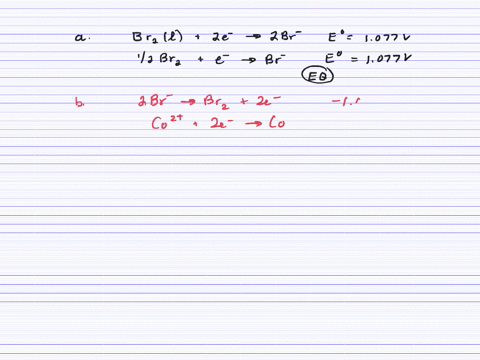 a. Br₂(l) + 2e⁻ → 2Br⁻ E° = 1.077 V
1/2 Br₂ + e⁻ → Br⁻ E° = 1.077 V
EQ
b. 2Br⁻ → Br₂ + 2e⁻
Co²⁺ + 2e⁻ → Co